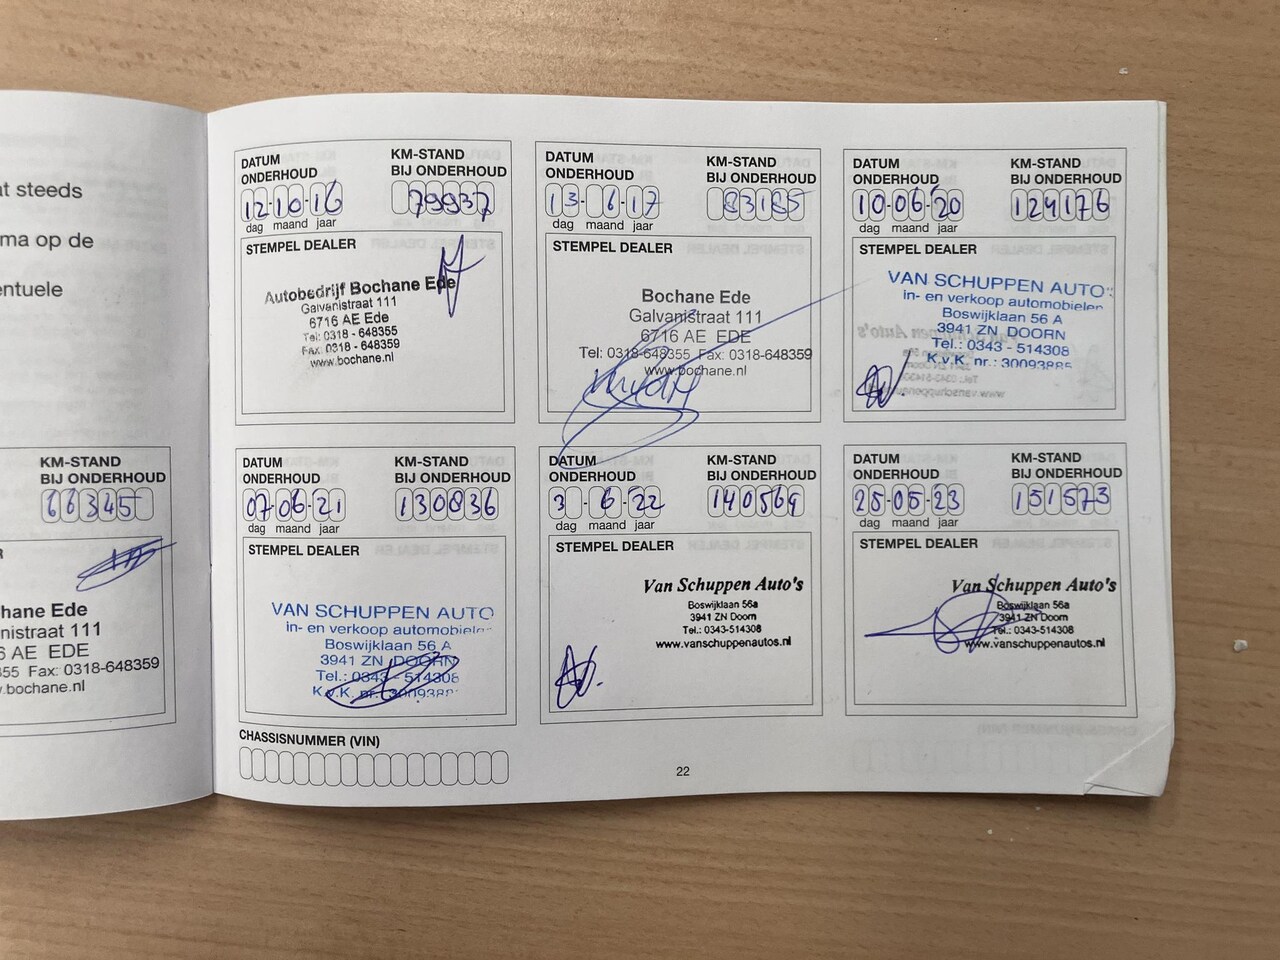 at steeds
ma op de
entuele
KM-STAND
BIJ ONDERHOUD
66345
hane Ede
nistraat 111
6 AE EDE
355 Fax: 0318-648359
.bochane.nl
DATUM
ONDERHOUD
KM-STAND
BIJ ONDERHOUD
12-10-16
79937
dag maand jaar
STEMPEL DEALER
Autobedrijf Bochane Ede
Galvanistraat 111
6716 AE Ede
Tel: 0318 - 648355
Fax: 0318 - 648359
www.bochane.nl
DATUM
ONDERHOUD
KM-STAND
BIJ ONDERHOUD
13-6-17
83185
dag maand jaar
STEMPEL DEALER
Bochane Ede
Galvanistraat 111
6716 AE EDE
Tel: 0318-648355 Fax: 0318-648359
www.bochane.nl
DATUM
ONDERHOUD
KM-STAND
BIJ ONDERHOUD
10-06-20
124176
dag maand jaar
STEMPEL DEALER
VAN SCHUPPEN AUTO'S
in- en verkoop automobielen
Boswijklaan 56 A
3941 ZN DOORN
Tel.: 0343 - 514308
K.v.K. nr.: 30093885
DATUM
ONDERHOUD
KM-STAND
BIJ ONDERHOUD
07-06-21
130836
dag maand jaar
STEMPEL DEALER
VAN SCHUPPEN AUTO
in- en verkoop automobielen
Boswijklaan 56 A
3941 ZN DOORN
Tel.: 0343 - 514308
K.v.K. nr.:
DATUM
ONDERHOUD
KM-STAND
BIJ ONDERHOUD
3-6-22
140569
dag maand jaar
STEMPEL DEALER
Van Schuppen Auto's
Boswijklaan 56a
3941 ZN Doorn
Tel.: 0343-514308
www.vanschuppenautos.nl
DATUM
ONDERHOUD
KM-STAND
BIJ ONDERHOUD
25-05-23
151573
dag maand jaar
STEMPEL DEALER
Van Schuppen Auto's
Boswijklaan 56a
3941 ZN Doorn
Tel.: 0343-514308
www.vanschuppenautos.nl
CHASSISNUMMER (VIN)
22